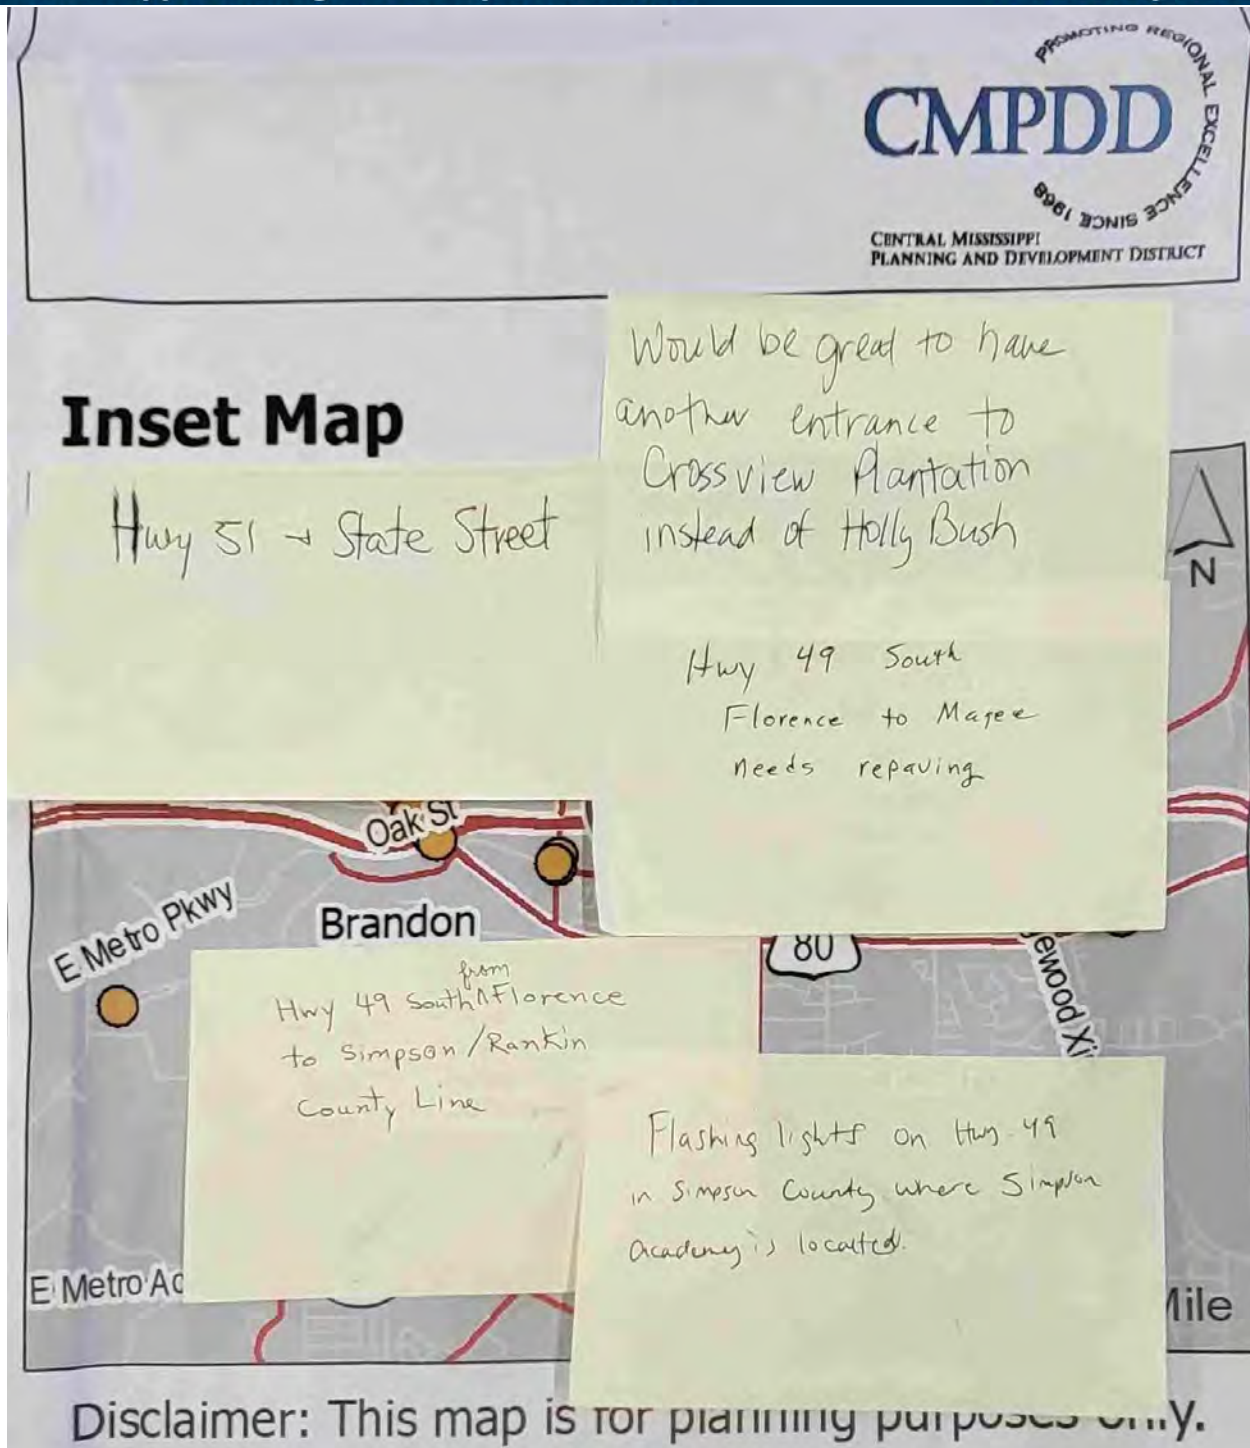 PROMOTING REGIONAL EXCELLENCE SINCE 1968
CMPDD
CENTRAL MISSISSIPPI
PLANNING AND DEVELOPMENT DISTRICT
Inset Map
Would be great to have
another entrance to
Crossview Plantation
instead of Holly Bush
Hwy 51 → State Street
N
Hwy 49 South
Florence to Magee
needs repaving
Oak St
E Metro Pkwy
Brandon
80
ewood Xi
Hwy 49 South ^from Florence
to Simpson/Rankin
County Line
Flashing lights on Hwy 49
in Simpson County where Simpson
Academy is located.
E Metro Ac
Mile
Disclaimer: This map is for planning purposes only.